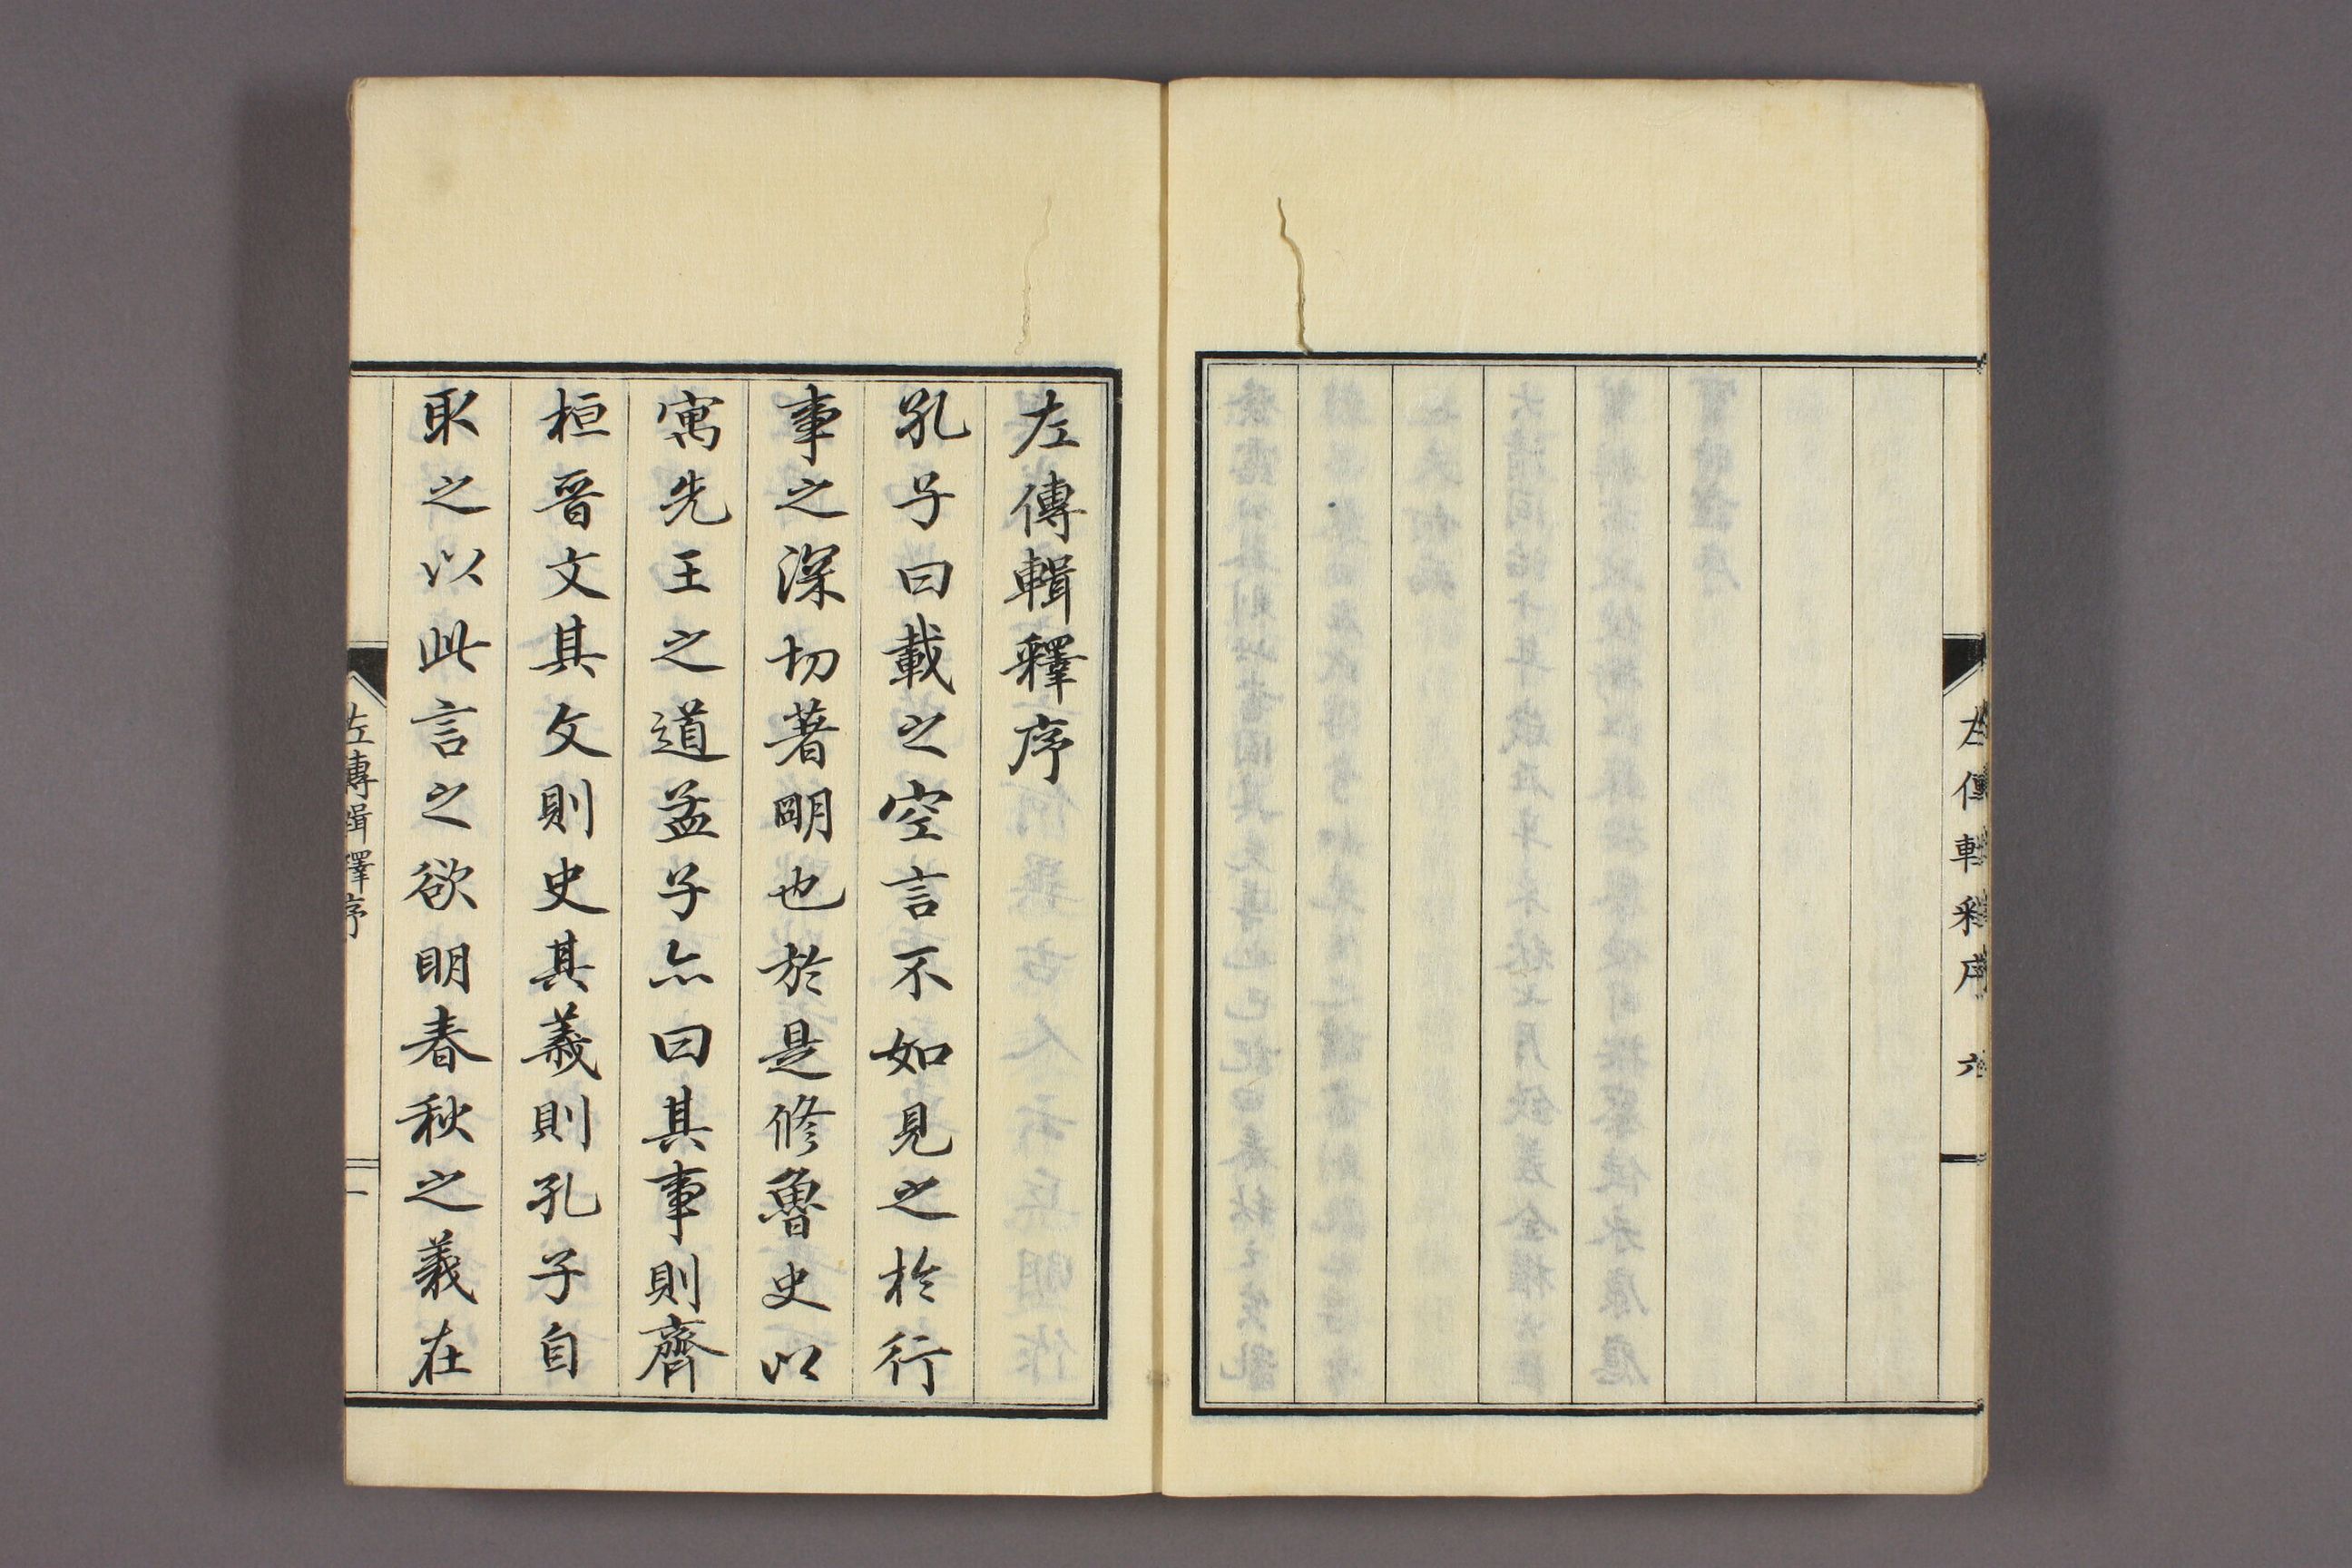 左傳輯釋序 六
左傳輯釋序
孔子曰載之空言不如見之於行
事之深切著明也於是修魯史以
寓先王之道孟子亦曰其事則齊
桓晉文其文則史其義則孔子自
取之以此言之欲明春秋之義在
左傳輯釋序 一